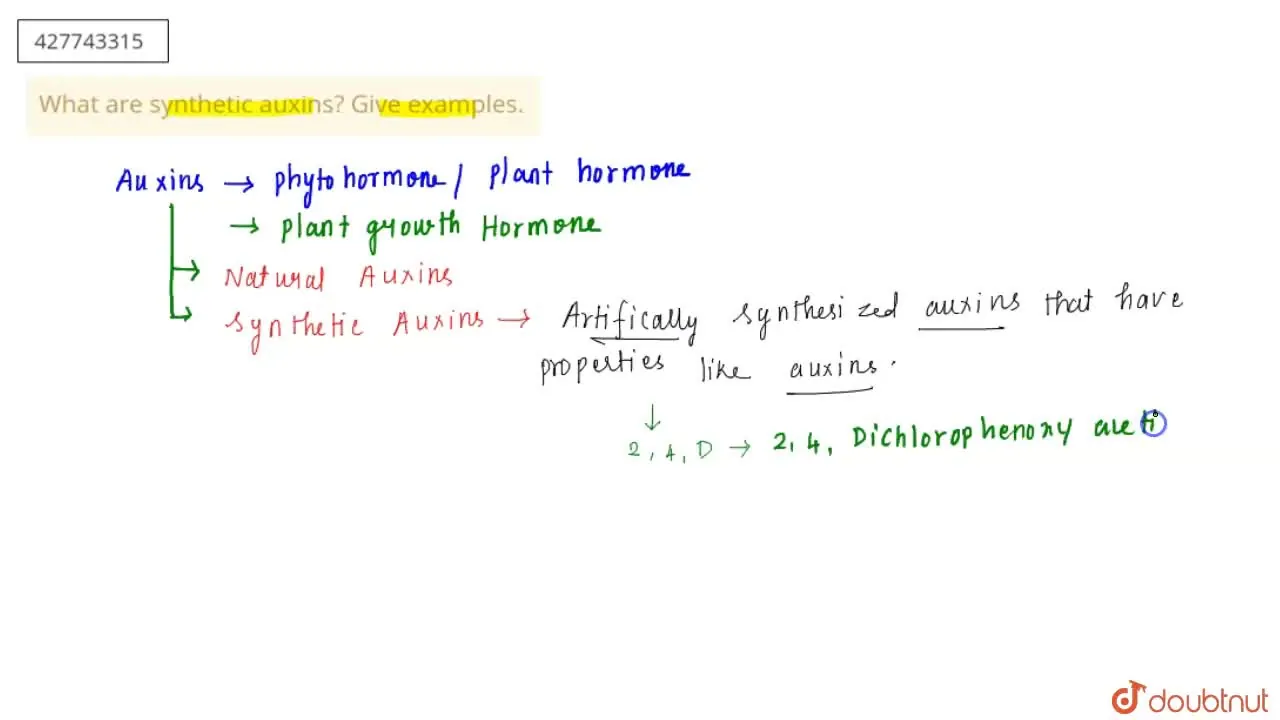 427743315
What are synthetic auxins? Give examples.
Auxins → phytohormone / plant hormone
→ plant growth Hormone
Natural Auxins
Synthetic Auxins → Artifically synthesized auxins that have
properties like auxins.
↓
2, 4, D → 2, 4, Dichlorophenoxy aceti
doubtnut